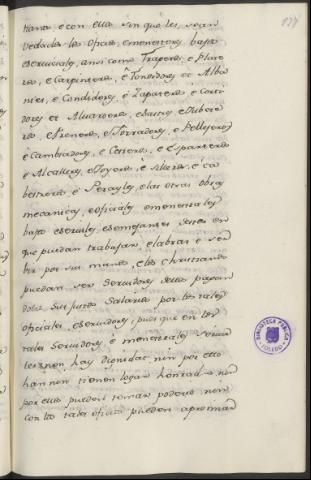 tiana, e con ellos sin que les sean
vedados los oficios, e menesteres bajos
e serviciales, ansi como Traperos, e Plate
ros, e Carpinteros, e Toneidores et Albañi
nies, e Condidores, e Zapateros e Corti
dores et Alvarderos, e Sastres e Jubete
ros, e Freneros, e Ferradores, e Pellejeros
e Cambiadores, e Cesteros, e Esparteros
e Alcalleres, e Joyeros, e Silleros, e ca
bestreros e las otras obras
mecanicas, e oficiales e menestrales
bajos e serviles, e semejantes destos en
que puedan trabajar, e labrar e ser
vir por sus manos, e los christianos
puedan ser servidores dellos pagan
doles sus justos salarios por los tales
oficiales, e servidores, pues que en los
tales servidores, e menestrales
les non hay dignidat nin por ello
han nin tienen logar honrado nin
por ellos pueden tomar poderio nin
con los tales oficios pueden apremiar
BIBLIOTECA PÚBLICA
TOLEDO